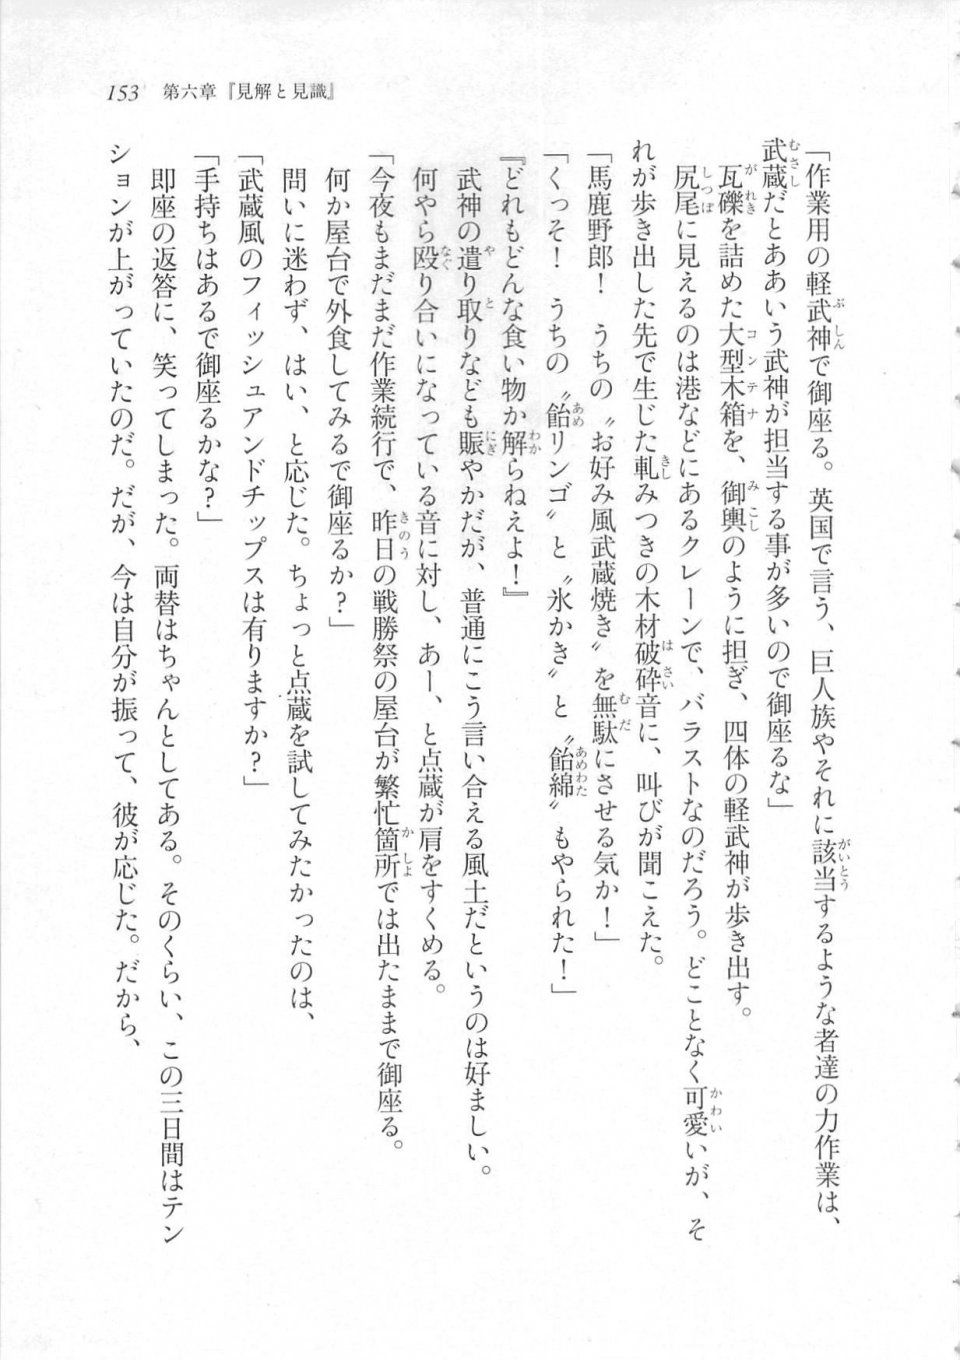 153 第六章『見解と見識』
「作業用の軽武神で御座る。英国で言う、巨人族やそれに該当するような者達の力作業は、
武蔵だとああいう武神が担当する事が多いので御座るな」
瓦礫を詰めた大型木箱を、御輿のように担ぎ、四体の軽武神が歩き出す。
尻尾に見えるのは港などにあるクレーンで、バラストなのだろう。どことなく可愛いが、そ
れが歩き出した先で生じた軋みつきの木材破砕音に、叫びが聞こえた。
「馬鹿野郎！　うちの〝お好み風武蔵焼き〟を無駄にさせる気か！」
「くっそ！　うちの〝飴リンゴ〟と〝氷かき〟と〝飴綿〟もやられた！」
『どれもどんな食い物か解らねえよ！』
武神の遣り取りなども賑やかだが、普通にこう言い合える風土だというのは好ましい。
何やら殴り合いになっている音に対し、あー、と点蔵が肩をすくめる。
「今夜もまだまだ作業続行で、昨日の戦勝祭の屋台が繁忙箇所では出たままで御座る。
何か屋台で外食してみるで御座るか？」
問いに迷わず、はい、と応じた。ちょっと点蔵を試してみたかったのは、
「武蔵風のフィッシュアンドチップスは有りますか？」
「手持ちはあるで御座るかな？」
即座の返答に、笑ってしまった。両替はちゃんとしてある。そのくらい、この三日間はテン
ションが上がっていたのだ。だが、今は自分が振って、彼が応じた。だから、